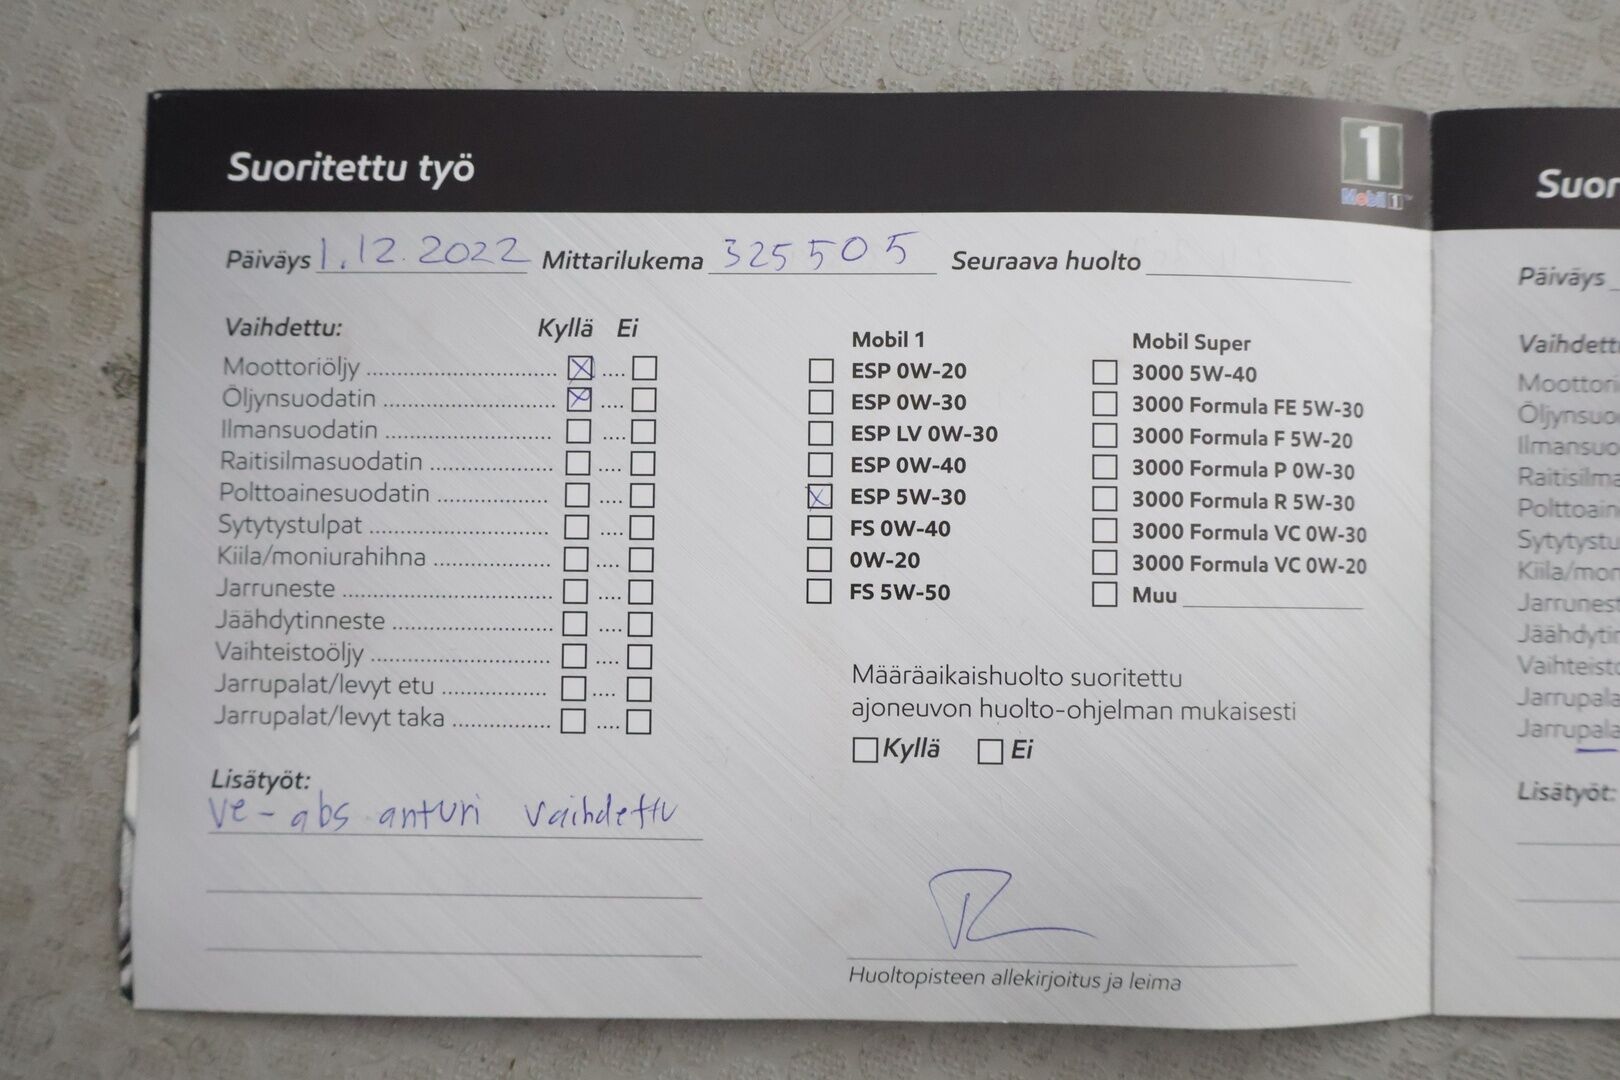 Suoritettu työ
1
Mobil 1™
Päiväys 1.12.2022 Mittarilukema 325505 Seuraava huolto
Vaihdettu: Kyllä Ei
Moottoriöljy
Öljynsuodatin
Ilmansuodatin
Raitisilmasuodatin
Polttoainesuodatin
Sytytystulpat
Kiila/moniurahihna
Jarruneste
Jäähdytinneste
Vaihteistoöljy
Jarrupalat/levyt etu
Jarrupalat/levyt taka
Lisätyöt:
ve-abs anturi vaihdettu
Mobil 1
ESP 0W-20
ESP 0W-30
ESP LV 0W-30
ESP 0W-40
ESP 5W-30
FS 0W-40
0W-20
FS 5W-50
Mobil Super
3000 5W-40
3000 Formula FE 5W-30
3000 Formula F 5W-20
3000 Formula P 0W-30
3000 Formula R 5W-30
3000 Formula VC 0W-30
3000 Formula VC 0W-20
Muu
Määräaikaishuolto suoritettu
ajoneuvon huolto-ohjelman mukaisesti
Kyllä Ei
Huoltopisteen allekirjoitus ja leima
Suor
Päiväys
Vaihdett
Moottori
Öljynsuo
Ilmansuo
Raitisilma
Polttoain
Sytytystu
Kiila/mon
Jarrunest
Jäähdytin
Vaihteisto
Jarrupala
Jarrupala
Lisätyöt: